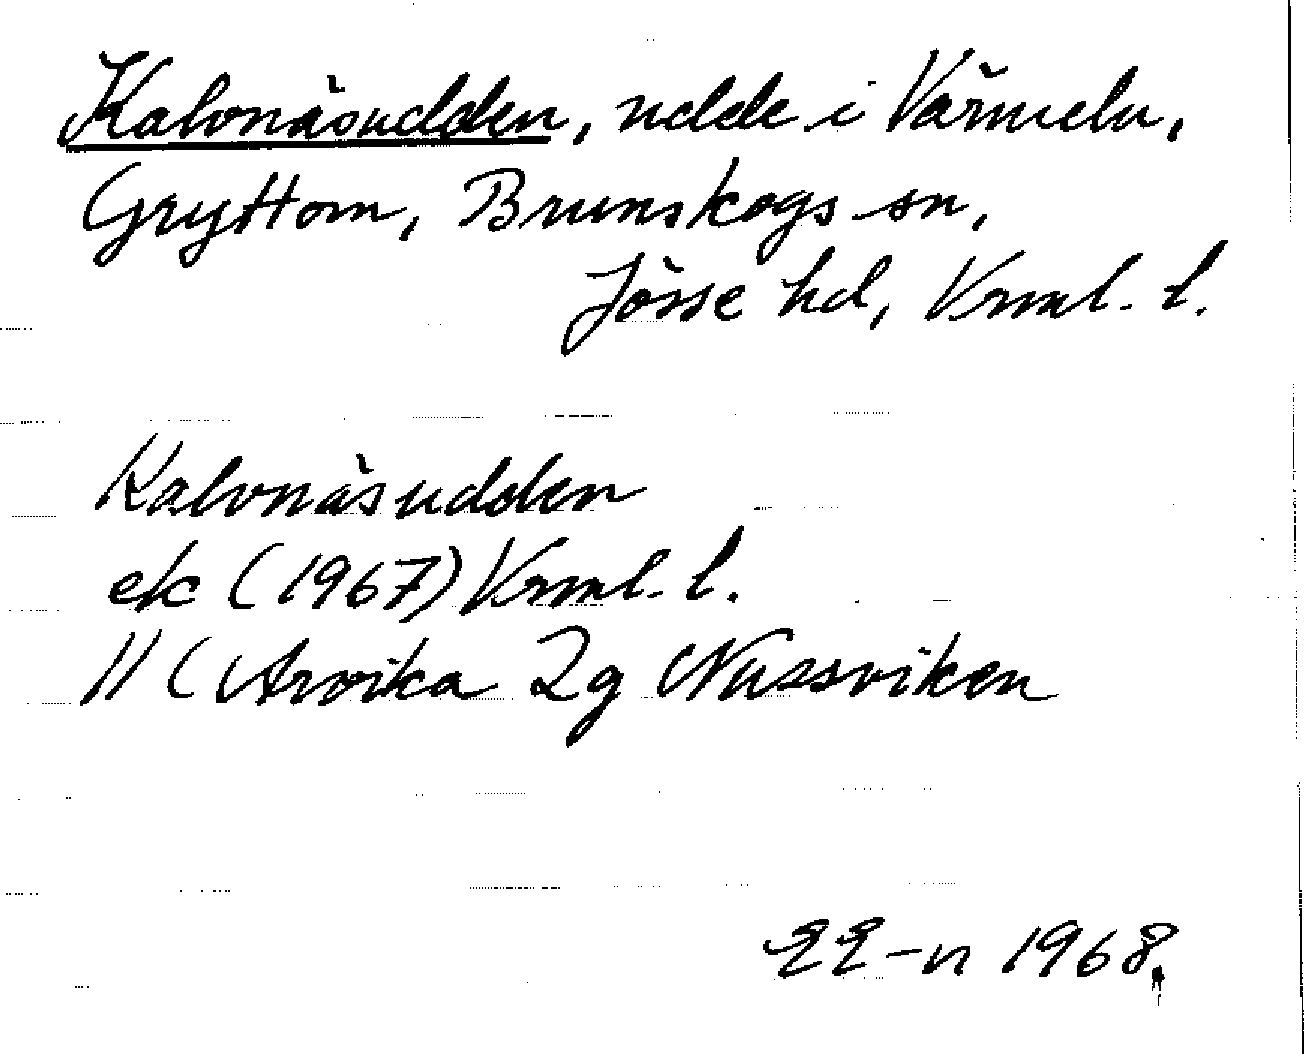 Kalvnäsudden, udde i Värmeln,
Gryttom, Brunskogs sn,
Jösse hd, Vrml. l.
Kalvnäsudden
ek (1967) Vrml. l.
11 C Arvika 2g Nussviken
EE-n 1968.